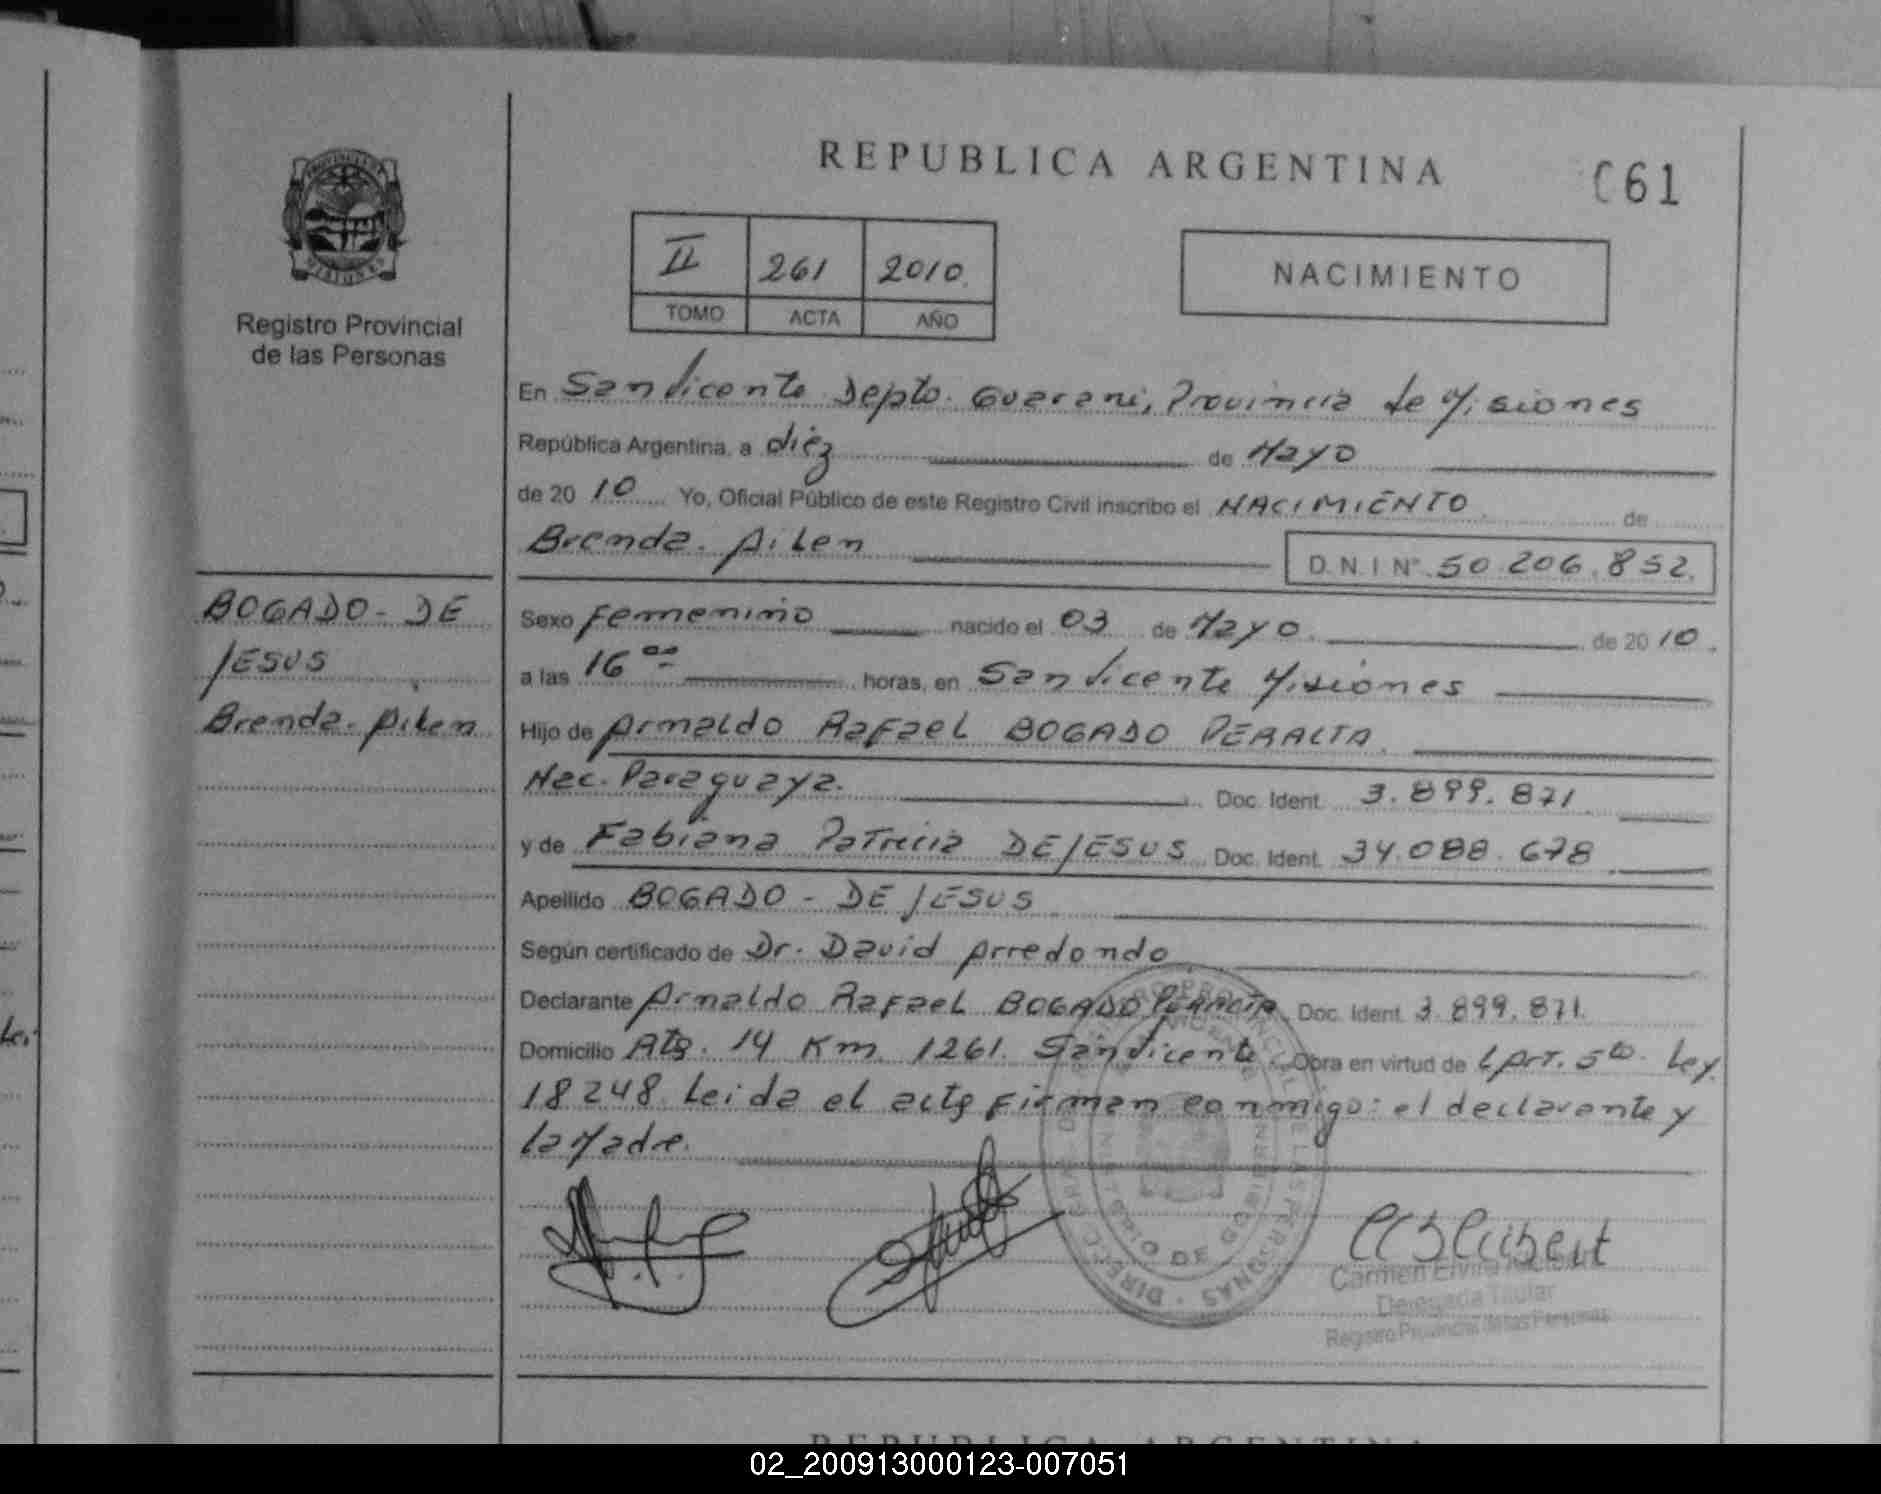 REPUBLICA ARGENTINA
C61
PROVINCIA DE
MISIONES
Registro Provincial
de las Personas
II 261 2010.
TOMO ACTA AÑO
NACIMIENTO
En San Vicente Depto. Guarani, Provincia de Misiones
República Argentina, a diez de Mayo
de 20 10 Yo, Oficial Público de este Registro Civil inscribo el NACIMIENTO de
Brenda. Ailen D.N.I Nº 50.206.852.
BOGADO - DE
JESUS
Brenda. Ailen
Sexo Femenino nacido el 03 de Mayo de 20 10.
a las 16 00 horas, en San Vicente Misiones
Hijo de Arnaldo Rafael BOGADO PERALTA
Nac. Paraguaya. Doc. Ident. 3.899.871
y de Fabiana Patricia DE JESUS Doc. Ident. 34.088.678
Apellido BOGADO - DE JESUS
Según certificado de Dr. David Arredondo
Declarante Arnaldo Rafael BOGADO PERALTA Doc. Ident. 3.899.871.
Domicilio 14 Km. 1261. San Vicente. Obra en virtud de Art. 5to. Ley
18248. Leida el acta firman conmigo: el declarante y
la Madre.
Carmen Elvira
Delegada Titular
Registro Provincial de las Personas
REPUBLICA ARGENTINA
02_200913000123-007051